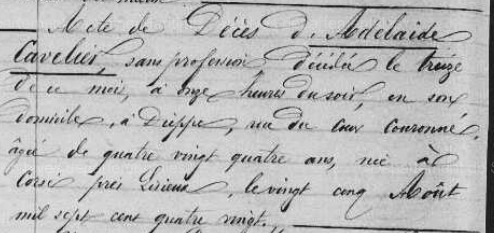 Acte de Décès d'Adélaide
Cavelier, sans profession décédée le treize
de ce mois, à onze heures du soir, en son
domicile, à Dieppe, rue du coux couronné,
âgée de quatre vingt quatre ans, née à
près Lisieux, le vingt cinq Août
mil sept cent quatre vingt.